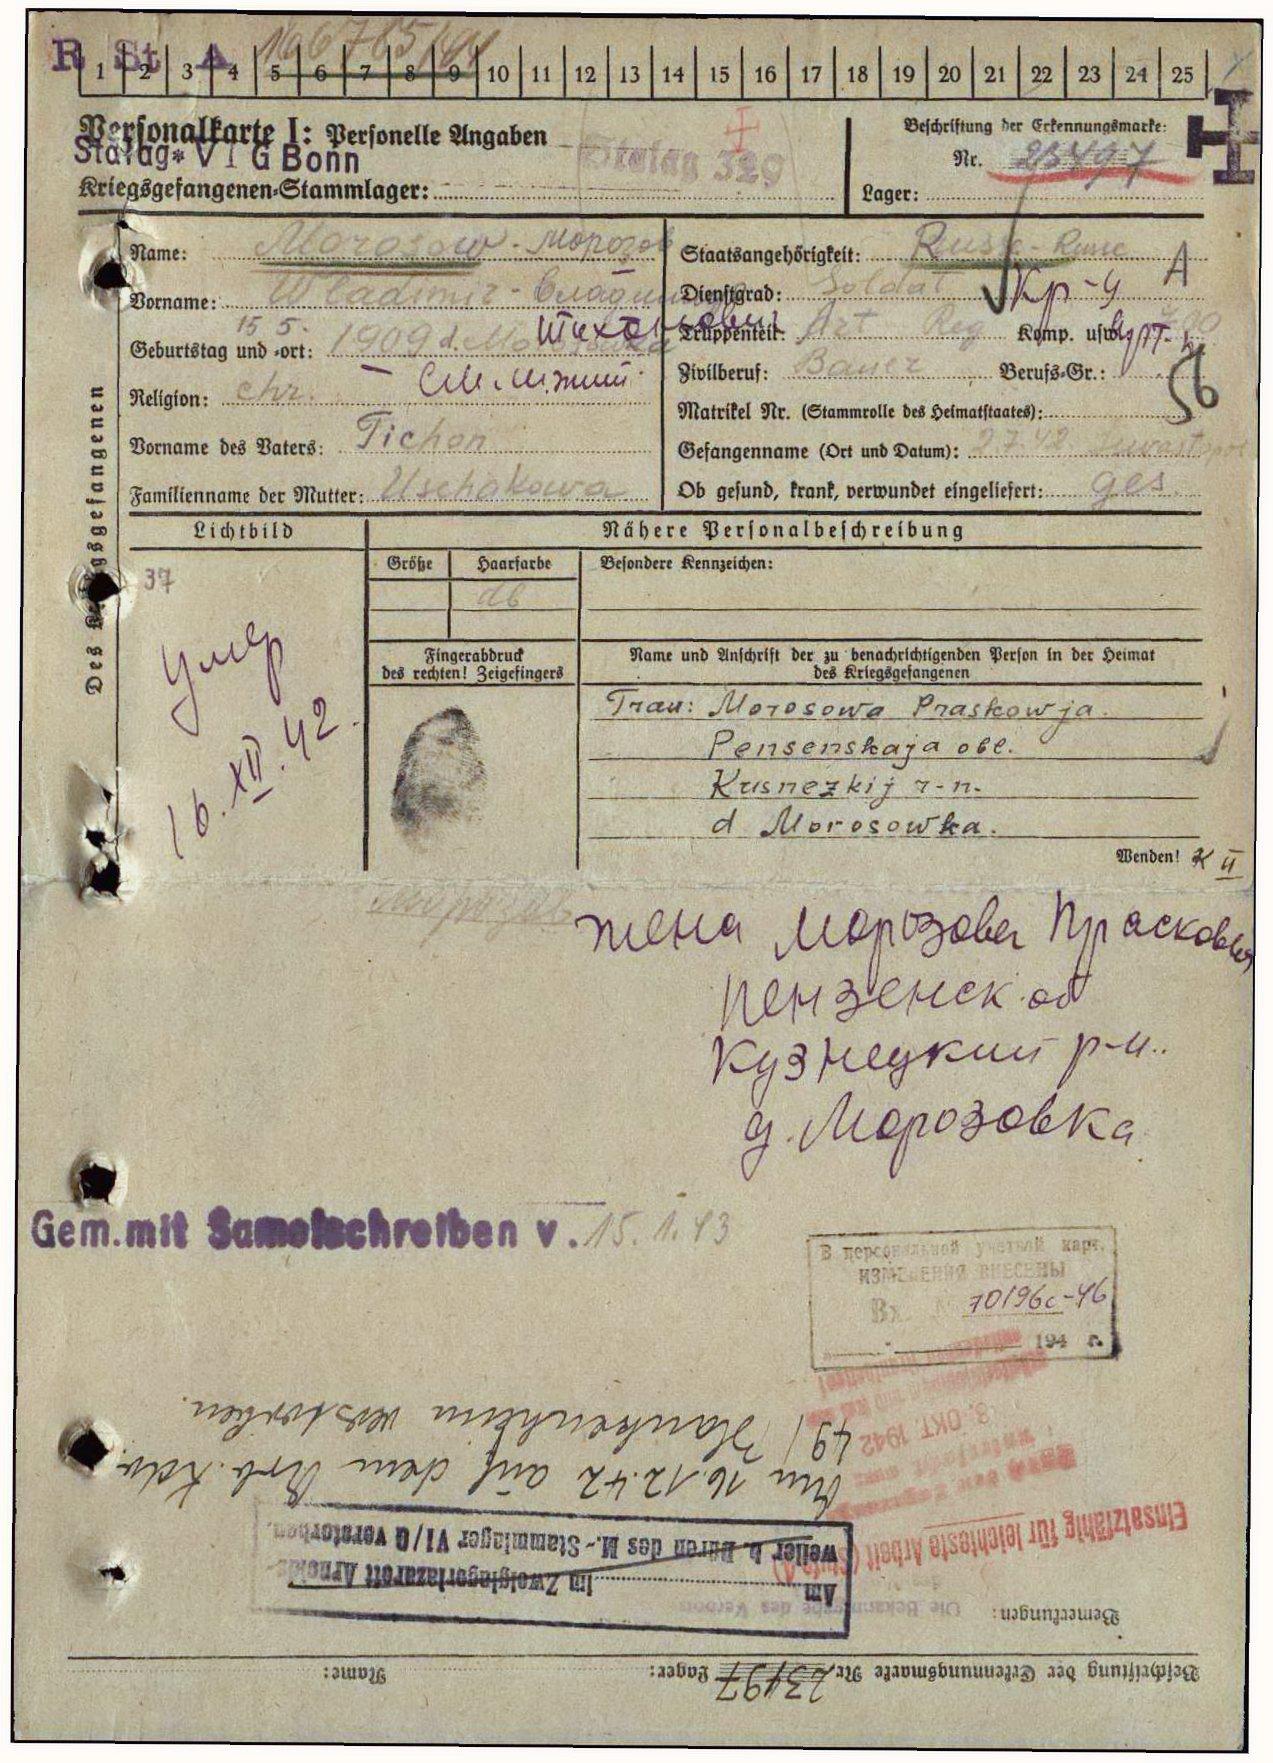 R St A 166765/191
1 2 3 4 5 6 7 8 9 10 11 12 13 14 15 16 17 18 19 20 21 22 23 24 25
Personalkarte I: Personelle Angaben
Beschriftung der Erkennungsmarke:
Stalag VI G Bonn
Stalag 329
Nr. 23497
Kriegsgefangenen-Stammlager:
Lager:
Des Kriegsgefangenen
Name: Morosow - Морозов
Vorname: Wladimir - Владимир
Тихонович
Geburtstag und -ort: 15 5. 1909 d. Morosowka
Religion: chr. - См. нижний
Vorname des Vaters: Tichon
Familienname der Mutter: Uschakowa
Staatsangehörigkeit: Russ - Russe
Dienstgrad: Soldat Кр-ц A
Truppenteil: Art Reg Komp. usw.
Zivilberuf: Bauer Berufs-Gr.:
Matrikel Nr. (Stammrolle des Heimatstaates):
Gefangenname (Ort und Datum): 2.7.42 Sewastopol
Ob gesund, krank, verwundet eingeliefert: ges.
Lichtbild
Nähere Personalbeschreibung
Größe Haarfarbe Besondere Kennzeichen:
37
db
умер
16.XII.42.
Fingerabdruck
des rechten! Zeigefingers
Name und Anschrift der zu benachrichtigenden Person in der Heimat
des Kriegsgefangenen
Frau: Morosowa Praskowja.
Pensenskaja obl.
Kusnezkij r-n.
d Morosowka.
Wenden! II
Морозов
жена Морозова Прасковья
Пензенск. об
Кузнецкий р-н..
д. Морозовка
Gem. mit Sammelschreiben v. 15.1.43
В персональной учетной карт.
ИЗМЕНЕНИЯ ВНЕСЕНЫ
Вх. 70196с-46
194 г.
Beschriftung der Erkennungsmarke Nr. 23497 Lager: Name:
Bemerkungen:
Am im Zweiglagerlazarett Arnolds-
weiler b. Düren des M.-Stammlager VI/G verstorben.
Einsatzfähig für leichteste Arbeit (Stufe A)
Am 16.12.42 auf dem Arb. Kdo.
49/ verstorben.
3. OKT 1942